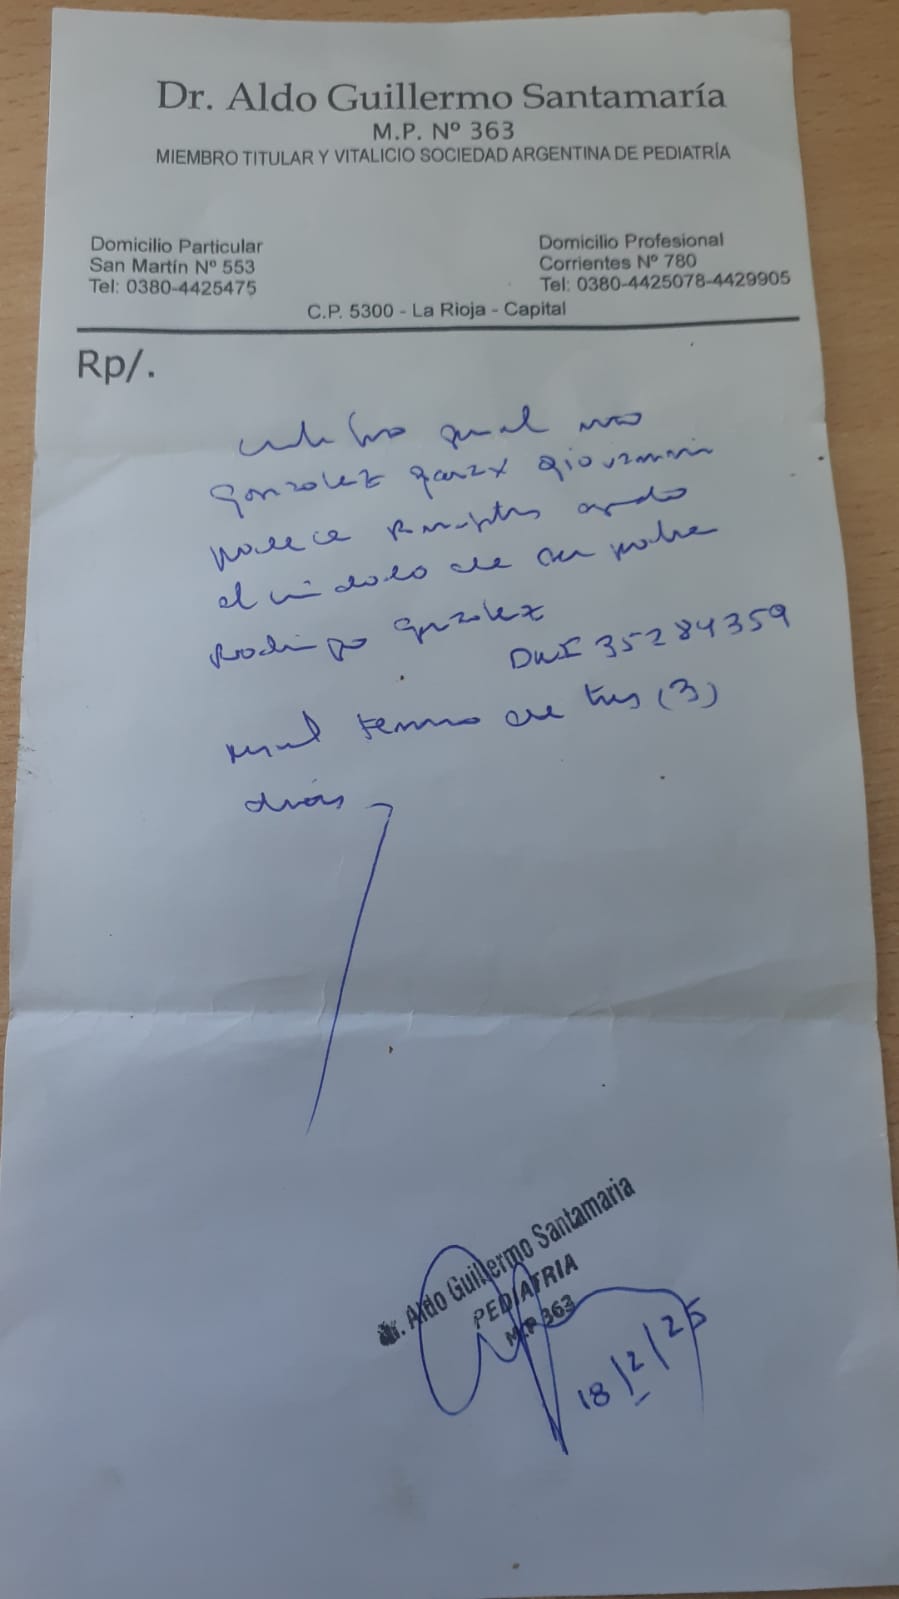 Dr. Aldo Guillermo Santamaría
M.P. Nº 363
MIEMBRO TITULAR Y VITALICIO SOCIEDAD ARGENTINA DE PEDIATRÍA
Domicilio Particular
San Martín Nº 553
Tel: 0380-4425475
Domicilio Profesional
Corrientes Nº 780
Tel: 0380-4425078-4429905
C.P. 5300 - La Rioja - Capital
Rp/.
que el
Gonzalez
el cuidado de su padre
Rodrigo Gonzalez
DNI 35284359
termino de tres (3)
dias
Dr. Aldo Guillermo Santamaria
PEDIATRIA
M.P 363
18/2/25